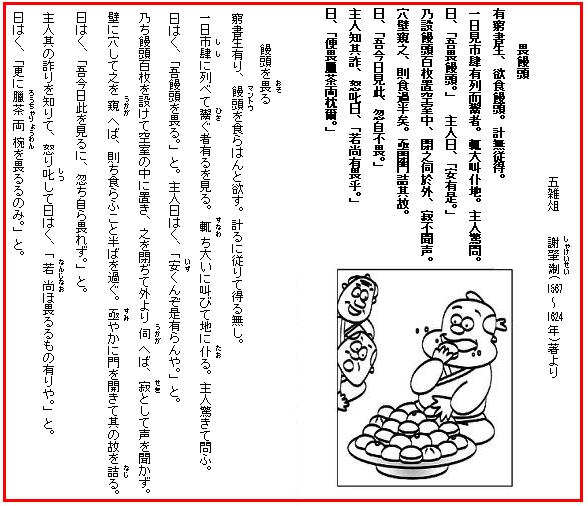 しゃけいせい
五雑俎 謝肇淛(1567～1624年)著より
畏饅頭
有窮書生、欲食饅頭。計無従得。
一日見市肆有列而鬻者。輒大叫仆地。主人驚問。
曰、「吾畏饅頭。」 主人曰、「安有是。」
乃設饅頭百枚置空室中、閉之伺於外、寂不聞声。
穴壁窺之、則食過半矣。亟開門詰其故。
曰、「吾今日見此、忽自不畏。」
主人知其詐、怒叱曰、「若尚有畏乎。」
曰、「便畏臘茶両枕爾。」
おそ
饅頭を畏る
マントウ
窮書生有り、饅頭を食らはんと欲す。計るに従りて得る無し。
しし ひさ すなわ たお
一日市肆に列べて鬻ぐ者有るを見る。輒ち大いに叫びて地に仆る。主人驚きて問ふ。
いず
曰はく、「吾饅頭を畏る。」と。主人曰はく、「安くんぞ是有らんや。」と。
うかが せき
乃ち饅頭百枚を設けて空室の中に置き、之を閉ぢて外より伺へば、寂として声を聞かず。
うかが すみ なじ
壁に穴して之を窺へば、則ち食らふこと半ばを過ぐ。亟やかに門を開きて其の故を詰る。
曰はく、「吾今日此を見るに、忽ち自ら畏れず。」と。
しつ なんじなお
主人其の詐りを知りて、怒り叱して曰はく、「若尚ほ畏るるもの有りや。」と。
ろうちゃりょうわん
曰はく、「更に臘茶両椀を畏るるのみ。」と。